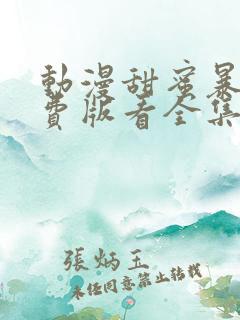 動漫甜蜜暴
費版看全集
張炳玉
未经同意禁止转载